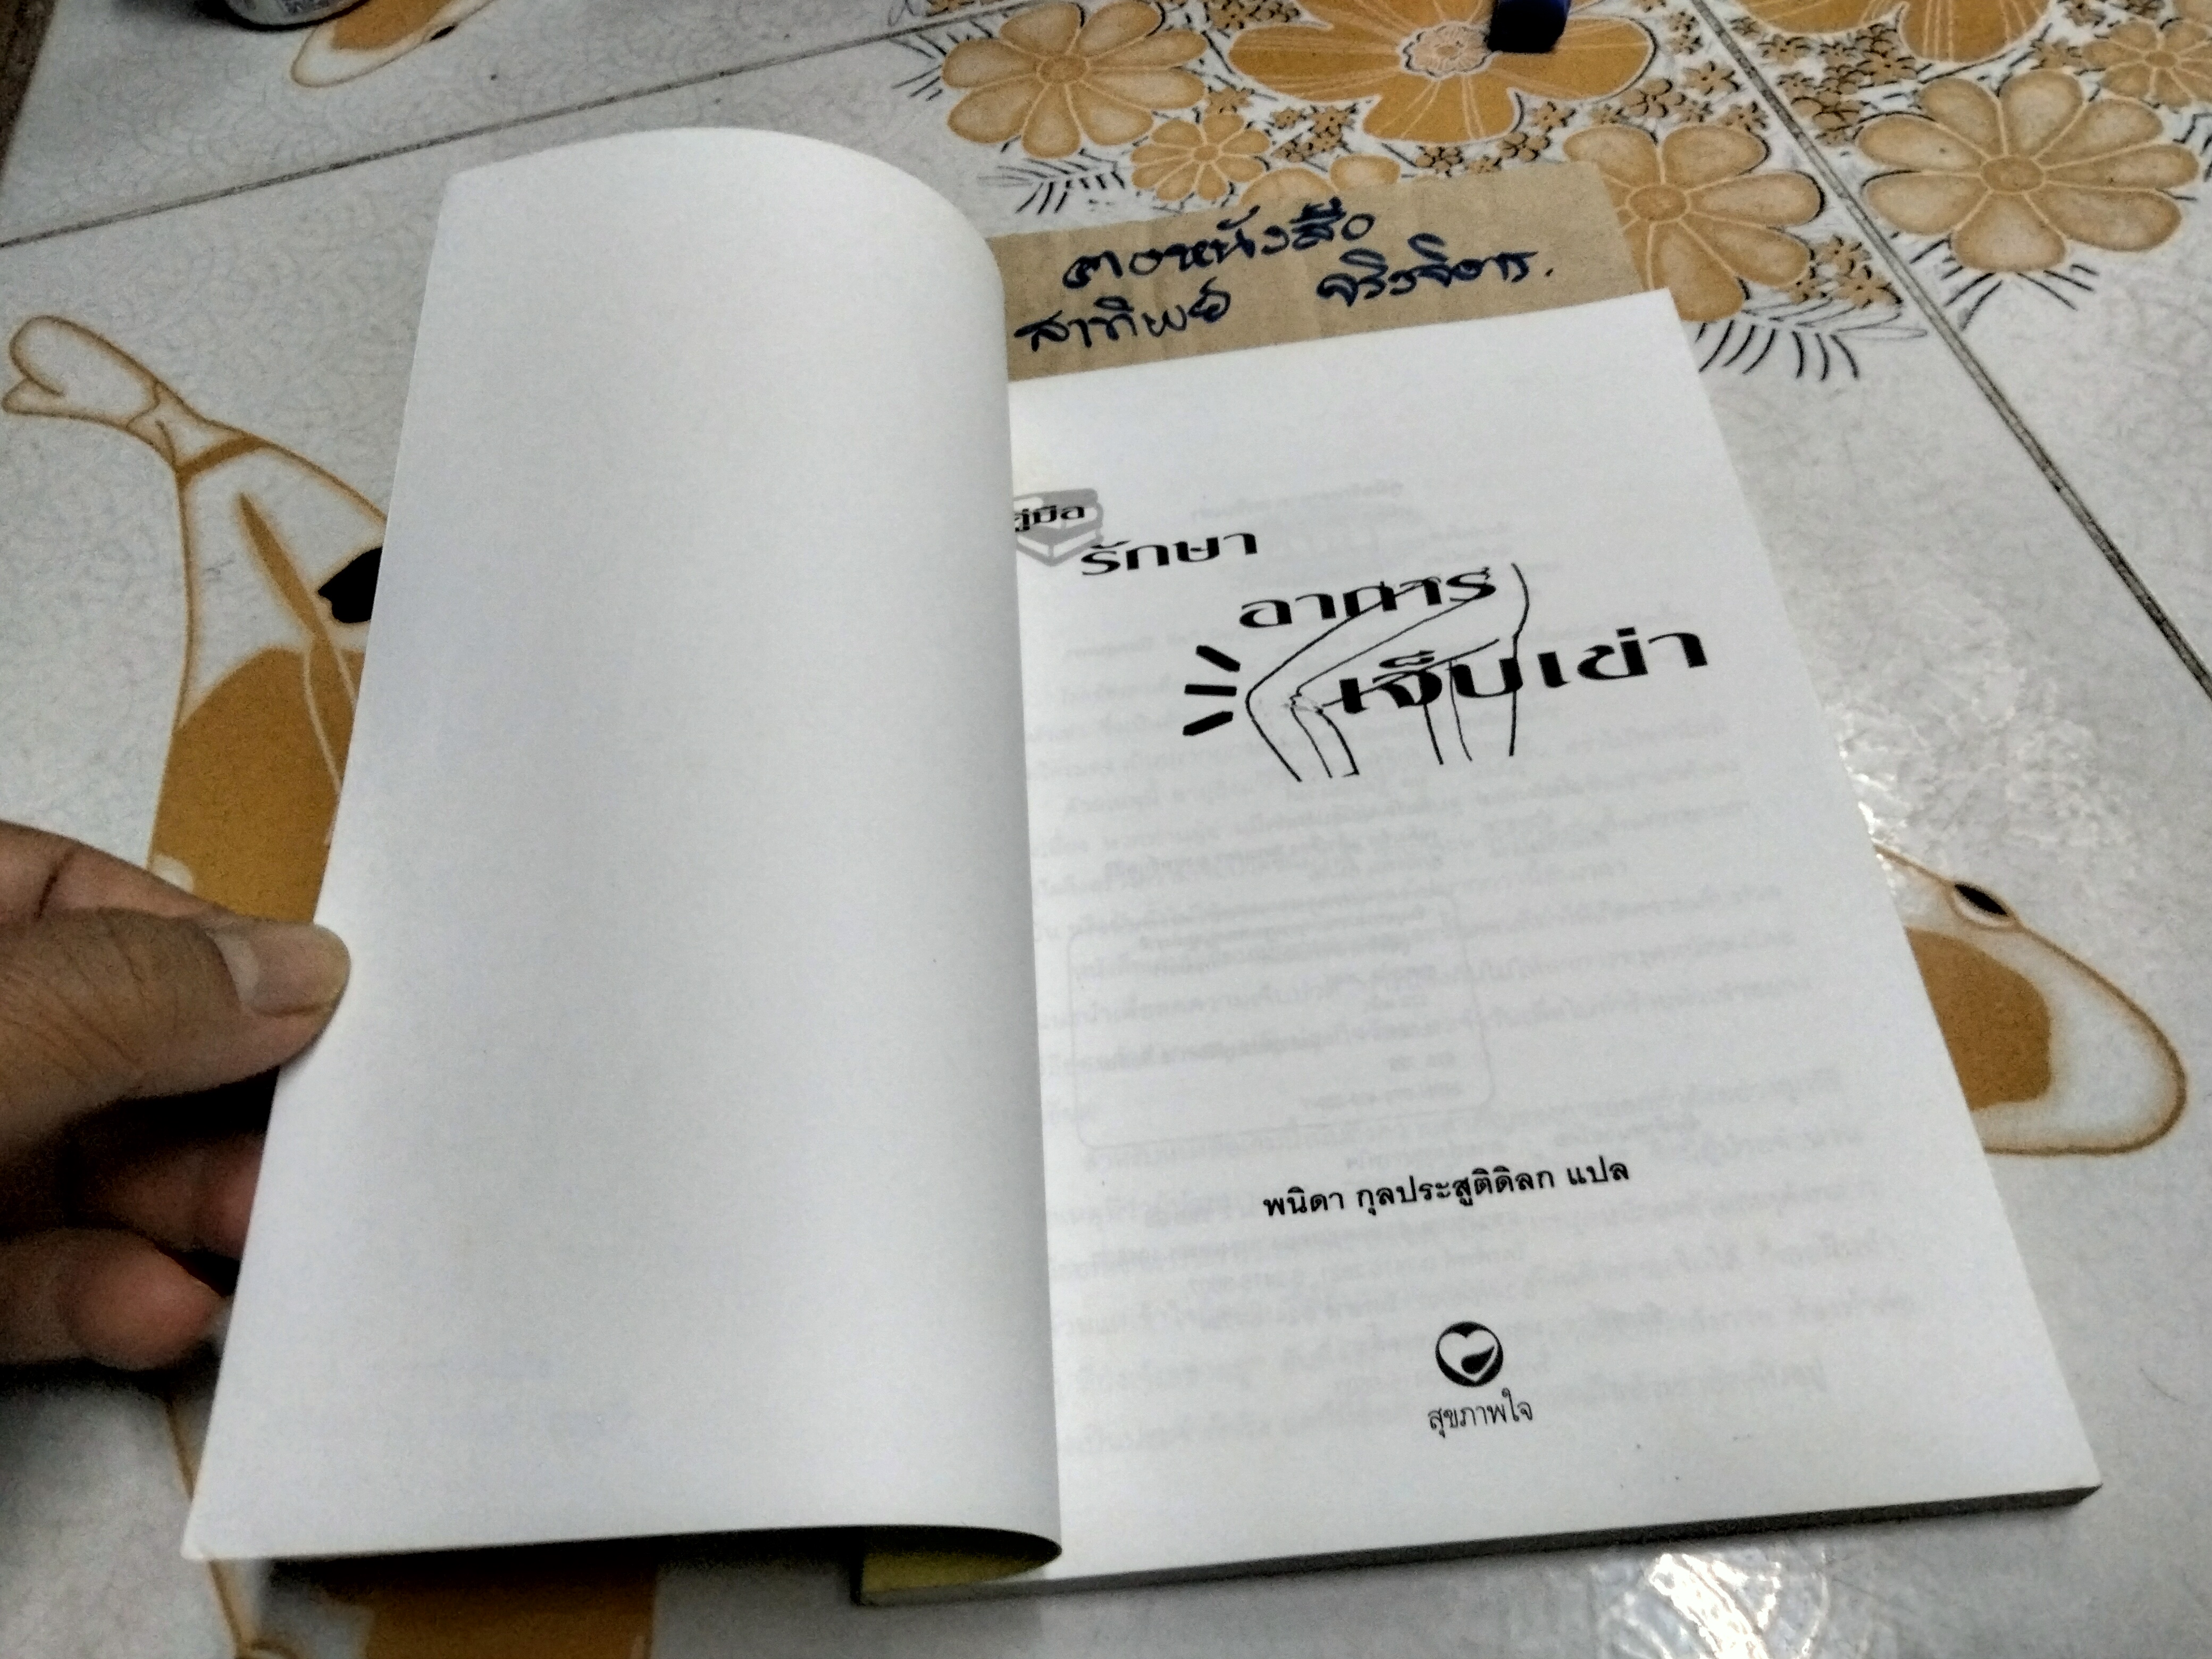 กองหนังสือ
สาทิพย์ จริงจิตร.
คู่มือ
รักษา
อาการ
เจ็บเข่า
พนิดา กุลประสูติดิลก แปล
สุขภาพใจ